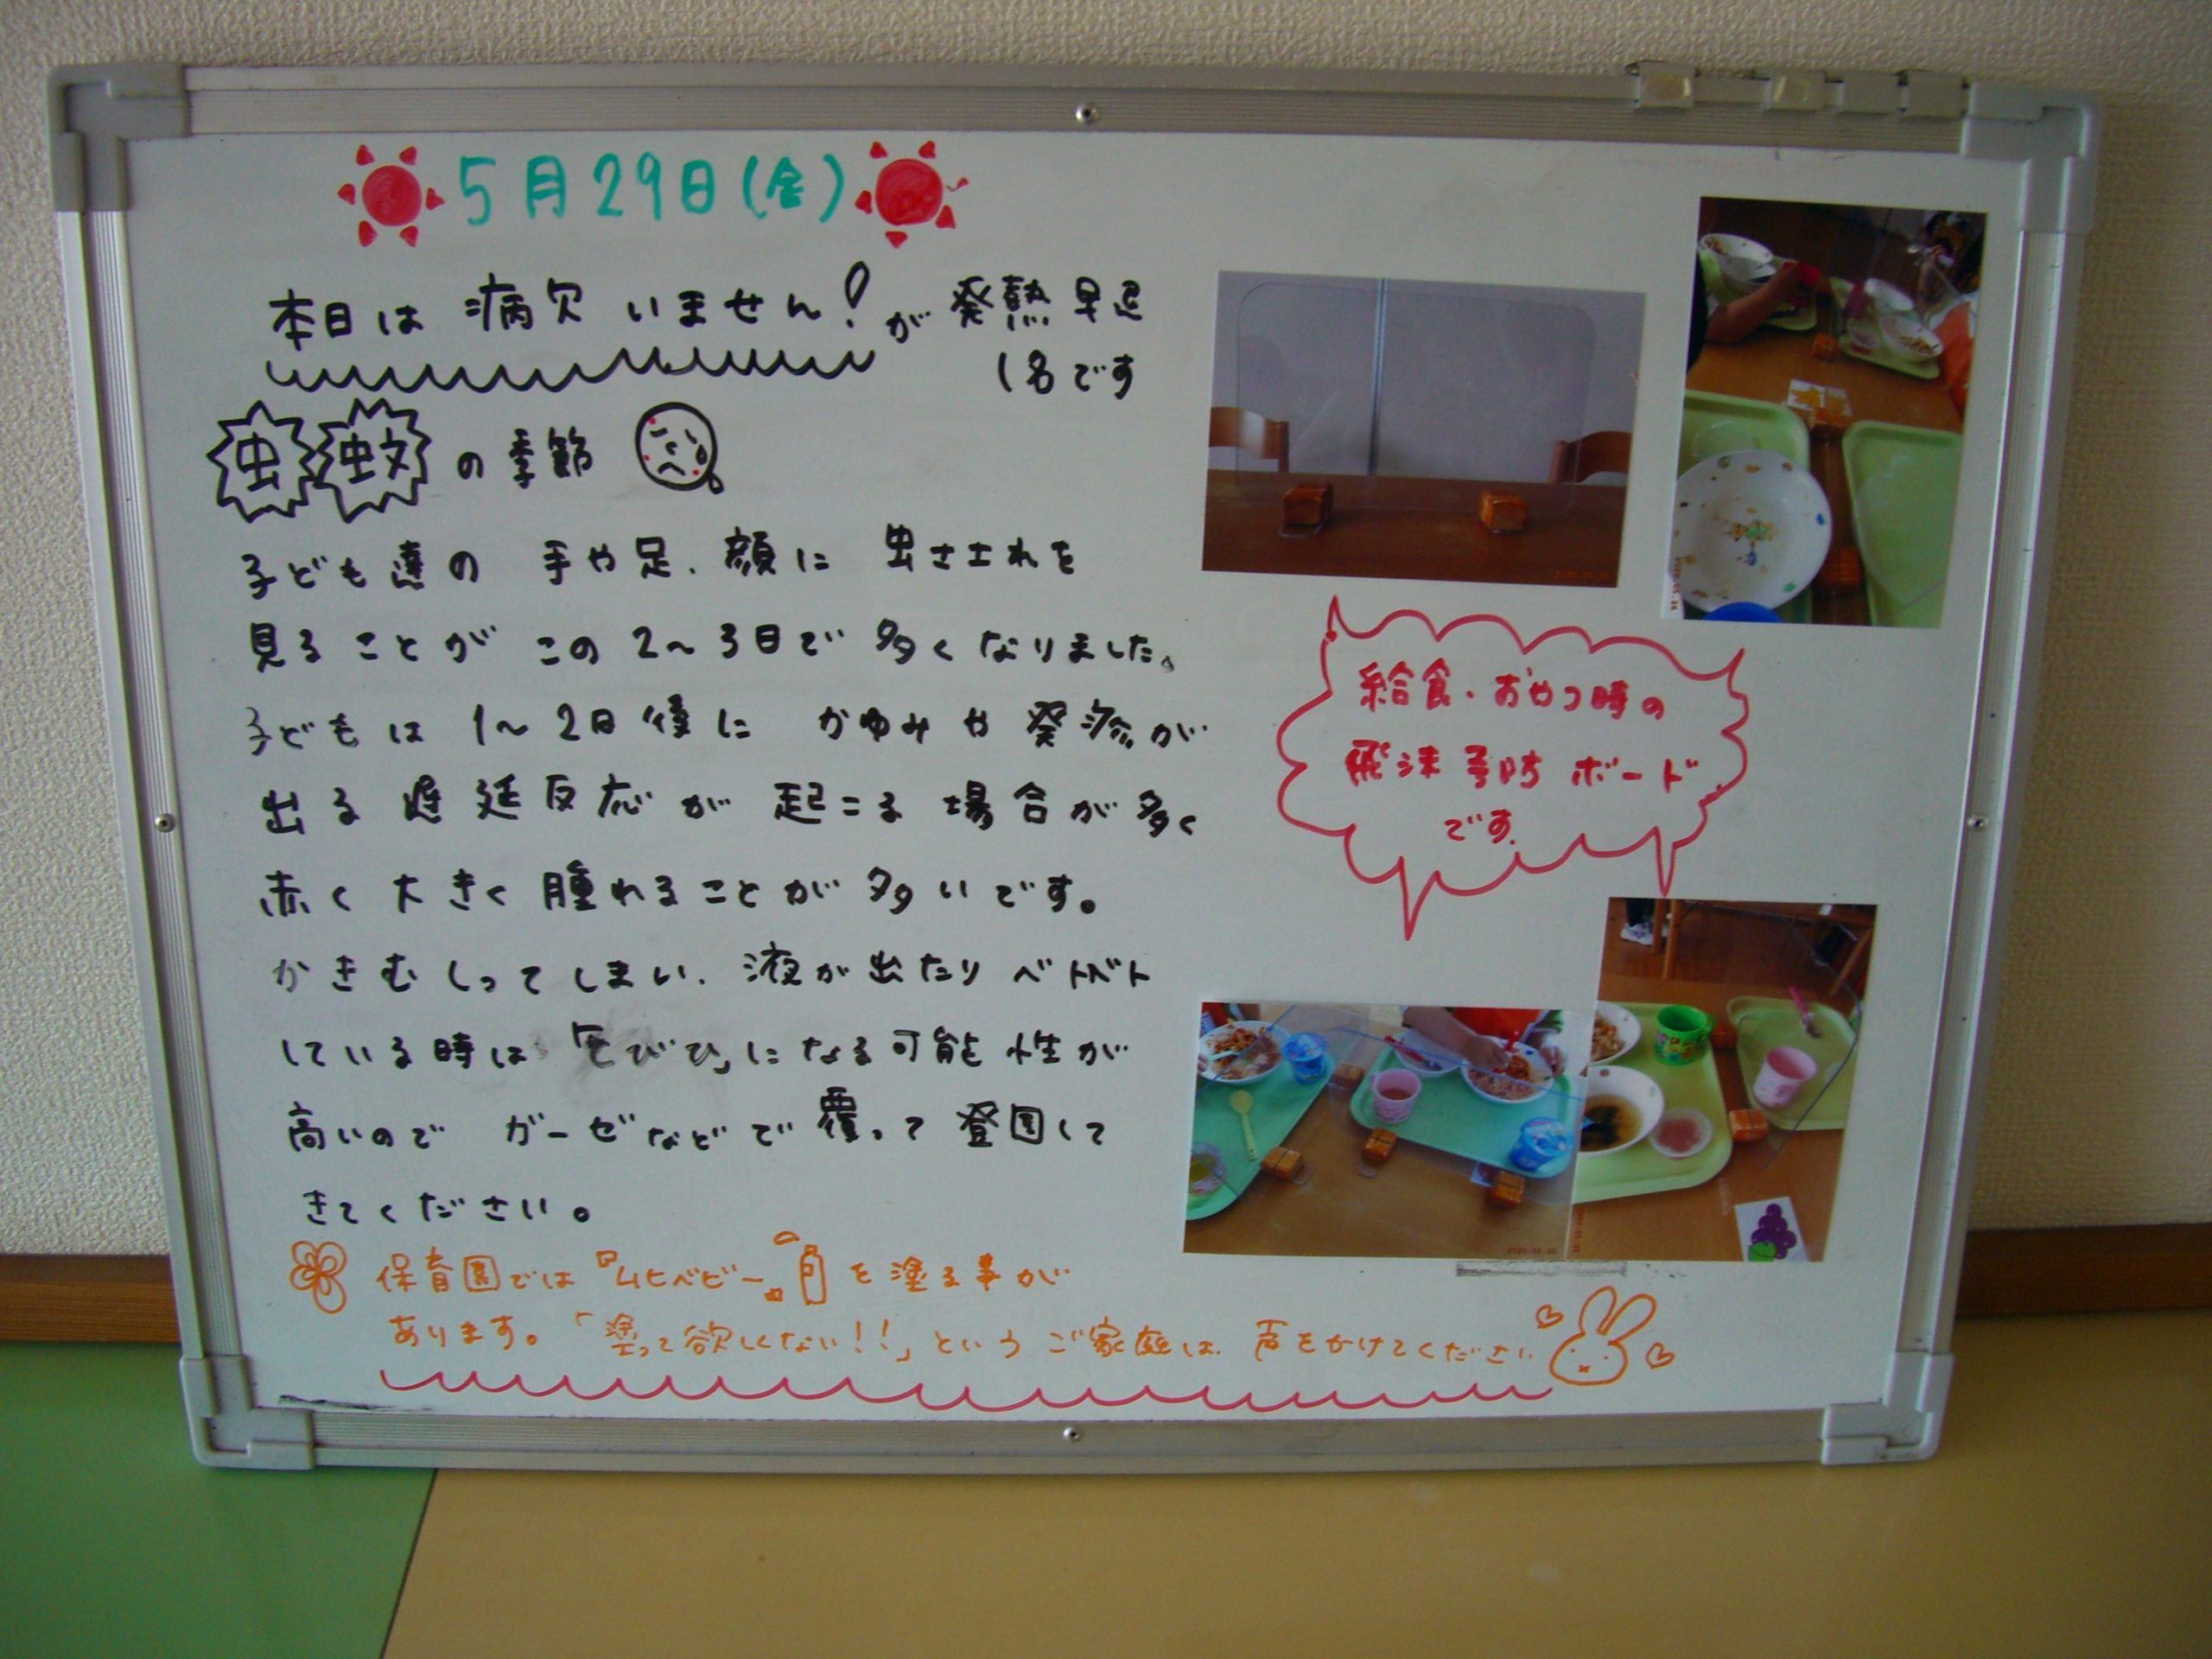 5月29日(金)
本日は 病欠 いません! が 発熱 早退
1名です
虫 蚊 の 季節
子ども達の 手や足、顔に 虫さされを
見ることが この 2〜3日で 多くなりました。
子どもは 1〜2日後に かゆみや 発疹が
出る 遅延反応が 起こる 場合が多く
赤く 大きく 腫れることが 多いです。
かきむしってしまい、液が出たり ベトベト
している時は「とびひ」になる可能性が
高いので ガーゼなどで 覆って 登園して
きてください。
保育園では『ムヒベビー』を塗る事が
あります。「塗って欲しくない!!」という ご家庭は、声をかけてください
給食・おやつ時の
飛沫予防 ボード
です。